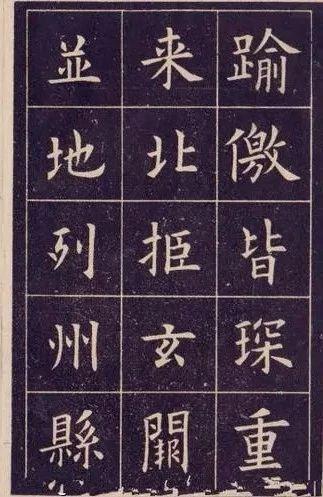 踰儌皆琛重
来北拒玄闕
並地列州縣